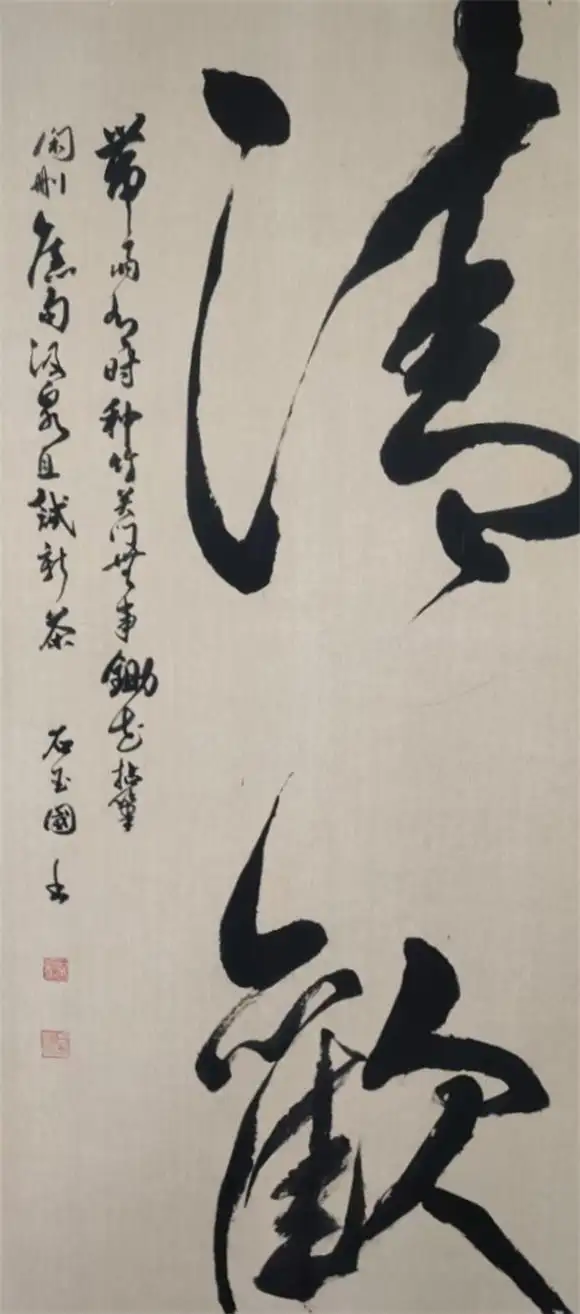 清歡
帶雨有时种竹关门無事鋤花拈筆
閑刪舊句汲泉且試新茶
石玉國书